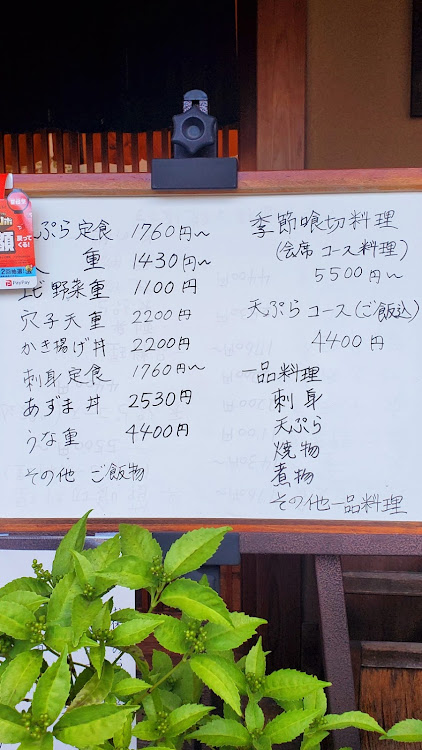 ぷら定食 1760円〜
重 1430円〜
野菜重 1100円
穴子天重 2200円
かき揚げ丼 2200円
刺身定食 1760円〜
あずま丼 2530円
うな重 4400円
その他 ご飯物
季節喰切料理
(会席コース料理)
5500円〜
天ぷらコース(ご飯込)
4400円
一品料理
刺身
天ぷら
焼物
煮物
その他一品料理
PayPay